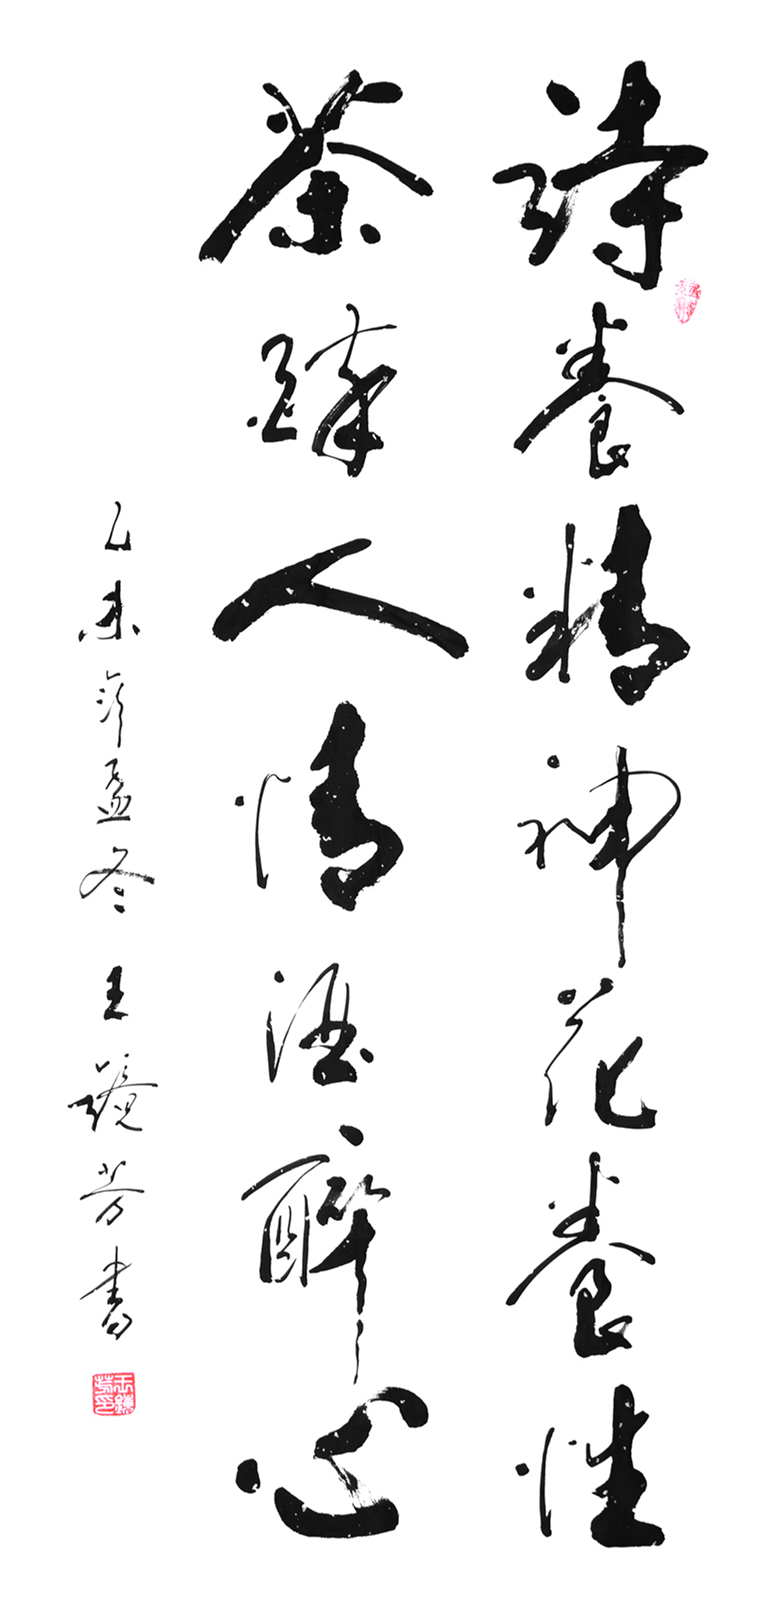 詩養精神花養性
茶醉人情酒醉心
乙未年孟冬王鏡芳書